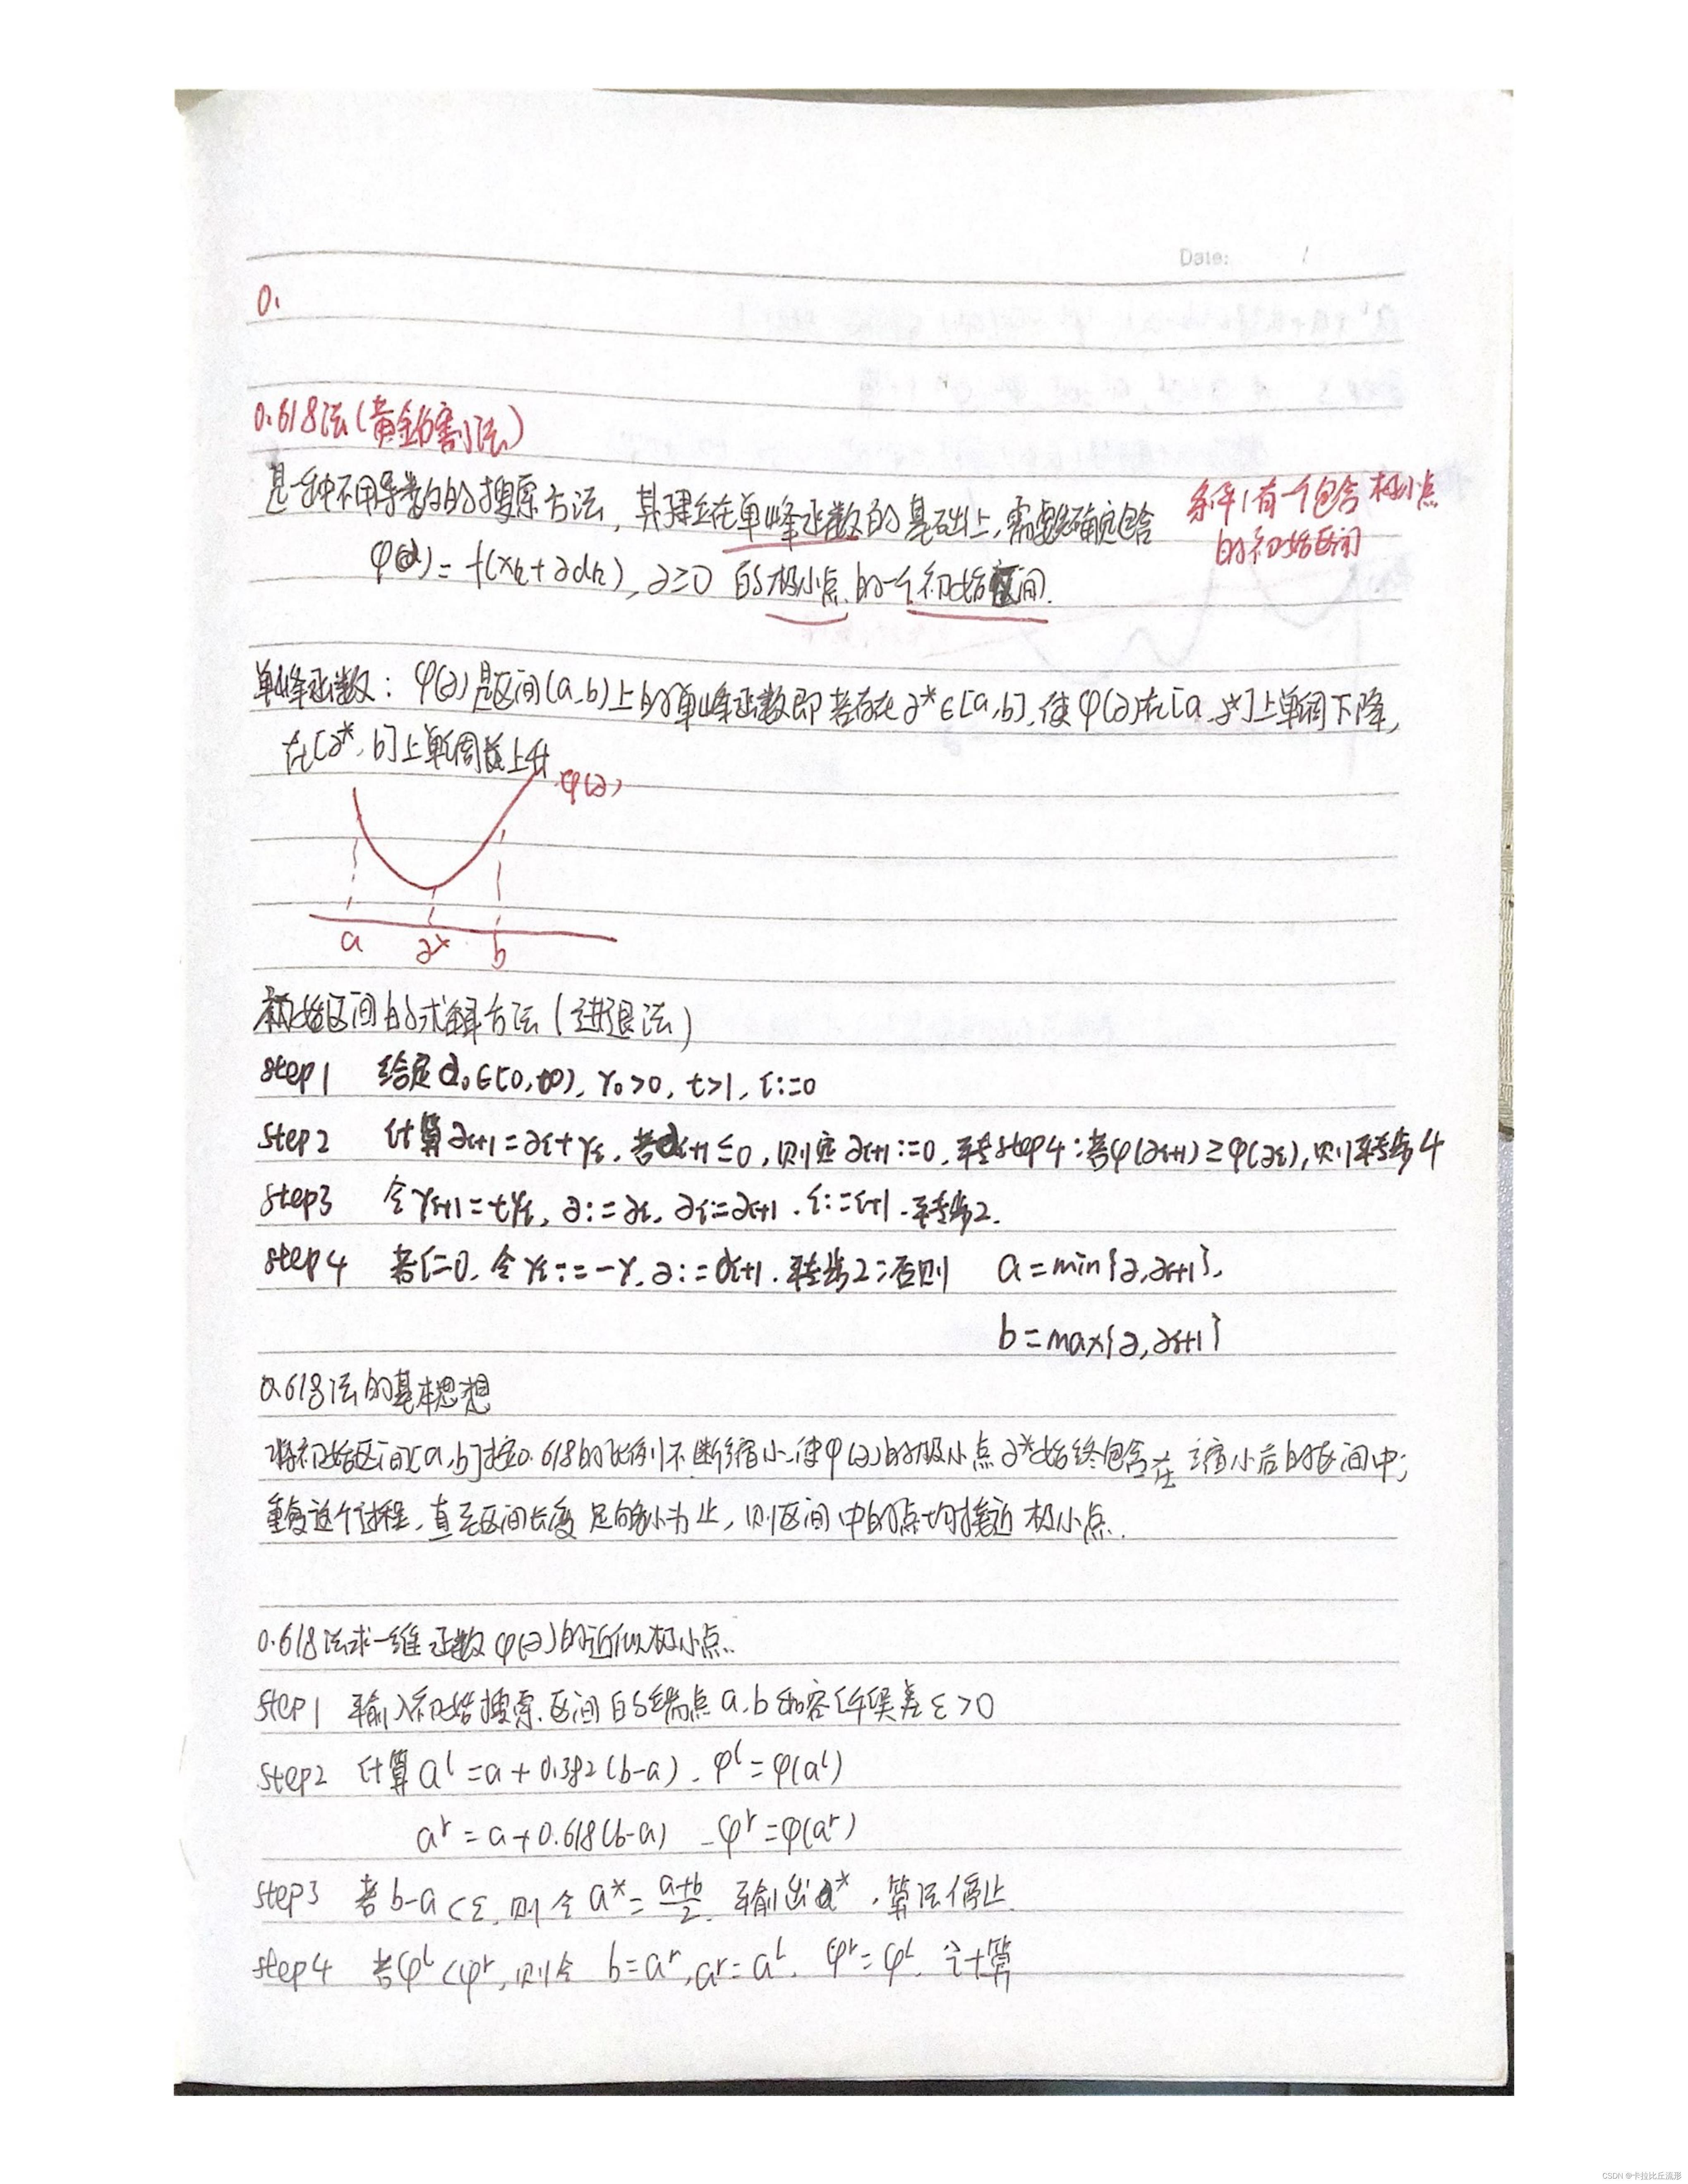 Date: /
0.
0.618法(黄金分割法)
是一种不用导数的搜索方法,其建立在单峰函数的基础上,需要先确定包含
条件1有一个包含极小点
的初始区间
φ(α)=f(xk+αdk),α≥0 的极小点的一个初始区间.
单峰函数:φ(α)是区间(a,b)上的单峰函数即若存在α*∈[a,b],使φ(α)在[a,α*]上单调下降,
在[α*,b]上单调上升
φ(α)
a α* b
初始区间的求解方法(进退法)
step1 给定α₀∈[0,+∞),γ₀>0,t>1,i:=0
step2 计算αi+1=αi+γi,若αi+1≤0,则定αi+1:=0,转step4;若φ(αi+1)≥φ(αi),则转步4
step3 令γi+1=tγi,α:=αi,αi:=αi+1,i:=i+1,转步2.
step4 若i=0,令γi:=-γ,α:=αi+1,转步2;否则 a=min{α,αi+1},
b=max{α,αi+1}
0.618法的基本思想
将初始区间[a,b]按0.618的比例不断缩小,使φ(α)的极小点α*始终包含在缩小后的区间中;
重复这个过程,直至区间长度足够小为止,则区间中的点均接近极小点.
0.618法求一维函数φ(α)的近似极小点.
step1 输入初始搜索区间的端点a,b和容许误差ε>0
step2 计算aˡ=a+0.382(b-a),φˡ=φ(aˡ)
aʳ=a+0.618(b-a),φʳ=φ(aʳ)
step3 若b-a<ε,则令a*=(a+b)/2,输出a*,算法停止.
step4 若φˡ<φʳ,则令 b=aʳ,aʳ=aˡ,φʳ=φˡ,计算
CSDN @卡拉比丘流形